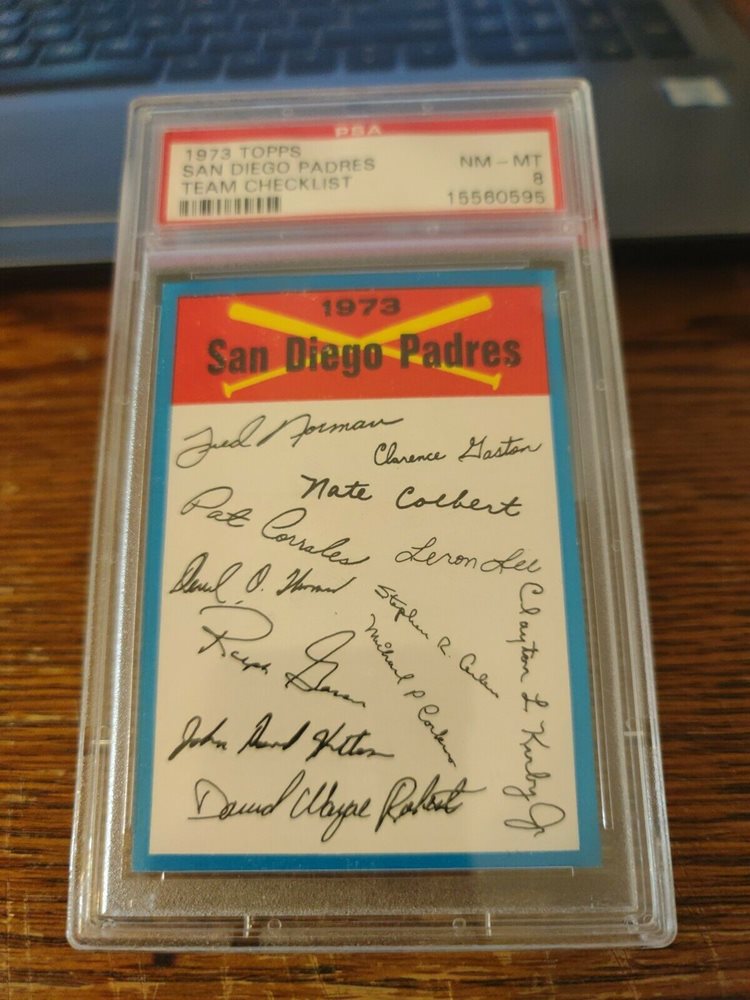 PSA
1973 TOPPS
SAN DIEGO PADRES NM - MT
TEAM CHECKLIST 8
15560595
1973
San Diego Padres
Fred Norman
Clarence Gaston
Nate Colbert
Pat Corrales
Leron Lee
Derrel O. Thomas
Stephen R. Arlin
Clayton L Kirby Jr
Ralph Garr
Michael P Corkins
John David Hilton
David Wayne Roberts